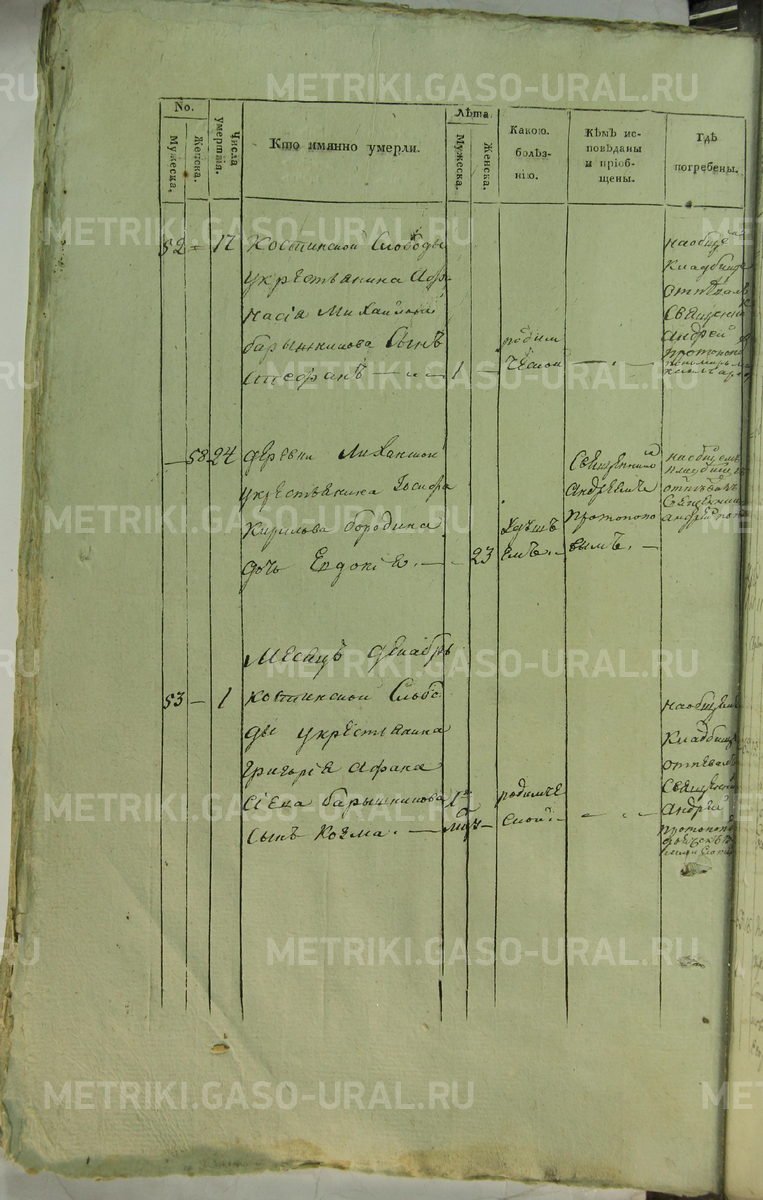 METRIKI.GASO-URAL.RU
No.
Мужеска.
Женска.
Числа умертвія.
Кто имянно умерли.
Лѣта.
Мужеска.
Женска.
Какою.
болѣз-
нію.
Кѣмъ ис-
повѣданы
и пріоб-
щены.
Гдѣ
погребены.
52 17 Костинской Слободы
укрестьянина Афа
насія Михайлова
барышникова Сынъ
Стефанъ 1
родим
ческой
наобще
Кладбище
отпѣвалъ
Священни
Андрей
протопопо
58 24 деревни
укрестьянина Іосифа
Кирилова бородина
дочь Евдокіе 23
Удуш
емъ.
Священнико
Андреемъ
Протопопо
вымъ.
наобщемъ
отпѣвалъ
Священни
андрей
Месяцъ декабрь
53 1 Костинской Слобо
ды укрестьянина
григорія Афана
сіева барышникова
Сынъ Козма.
родимче
ской
наобщемъ
Кладбище
отпевалъ
Священни
Андрей
протопопо